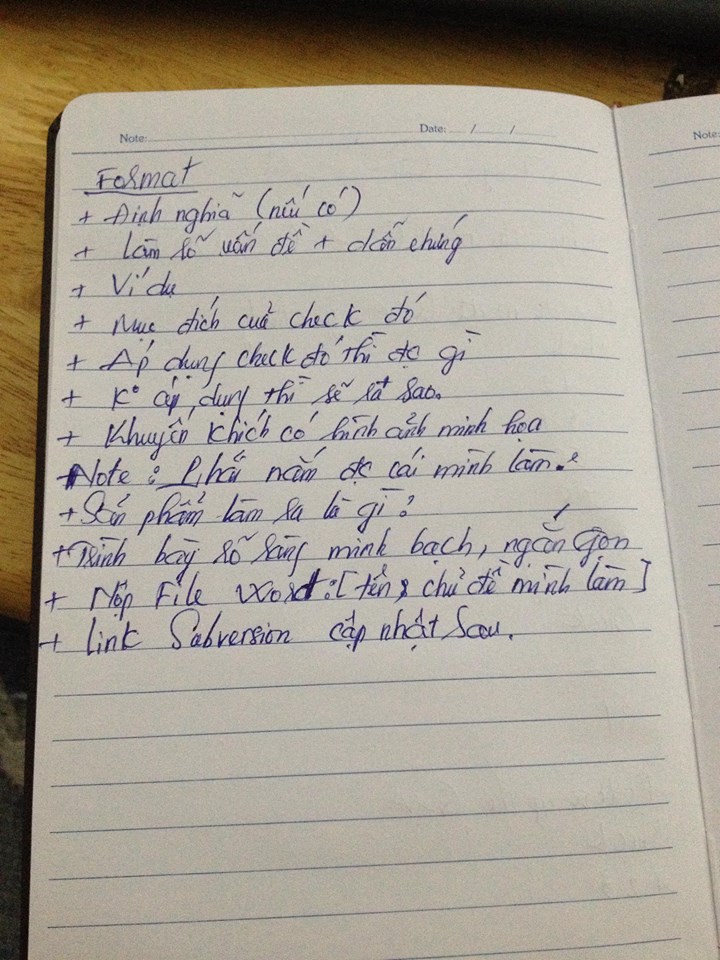 Note: Date: / /
Note:
Format
+ Định nghĩa (nếu có)
+ Làm rõ vấn đề + dẫn chứng
+ Ví dụ
+ Mục đích của check đó
+ Áp dụng check đó thì đc gì
+ K° áp dụng thì sẽ ra sao.
+ Khuyến khích có hình ảnh minh họa
Note : Phải nắm đc cái mình làm.
+ Sản phẩm làm ra là gì?
+ Trình bày rõ ràng minh bạch, ngắn gọn
+ Nộp File Word: [tên, chủ đề mình làm]
+ Link Subversion cập nhật sau.